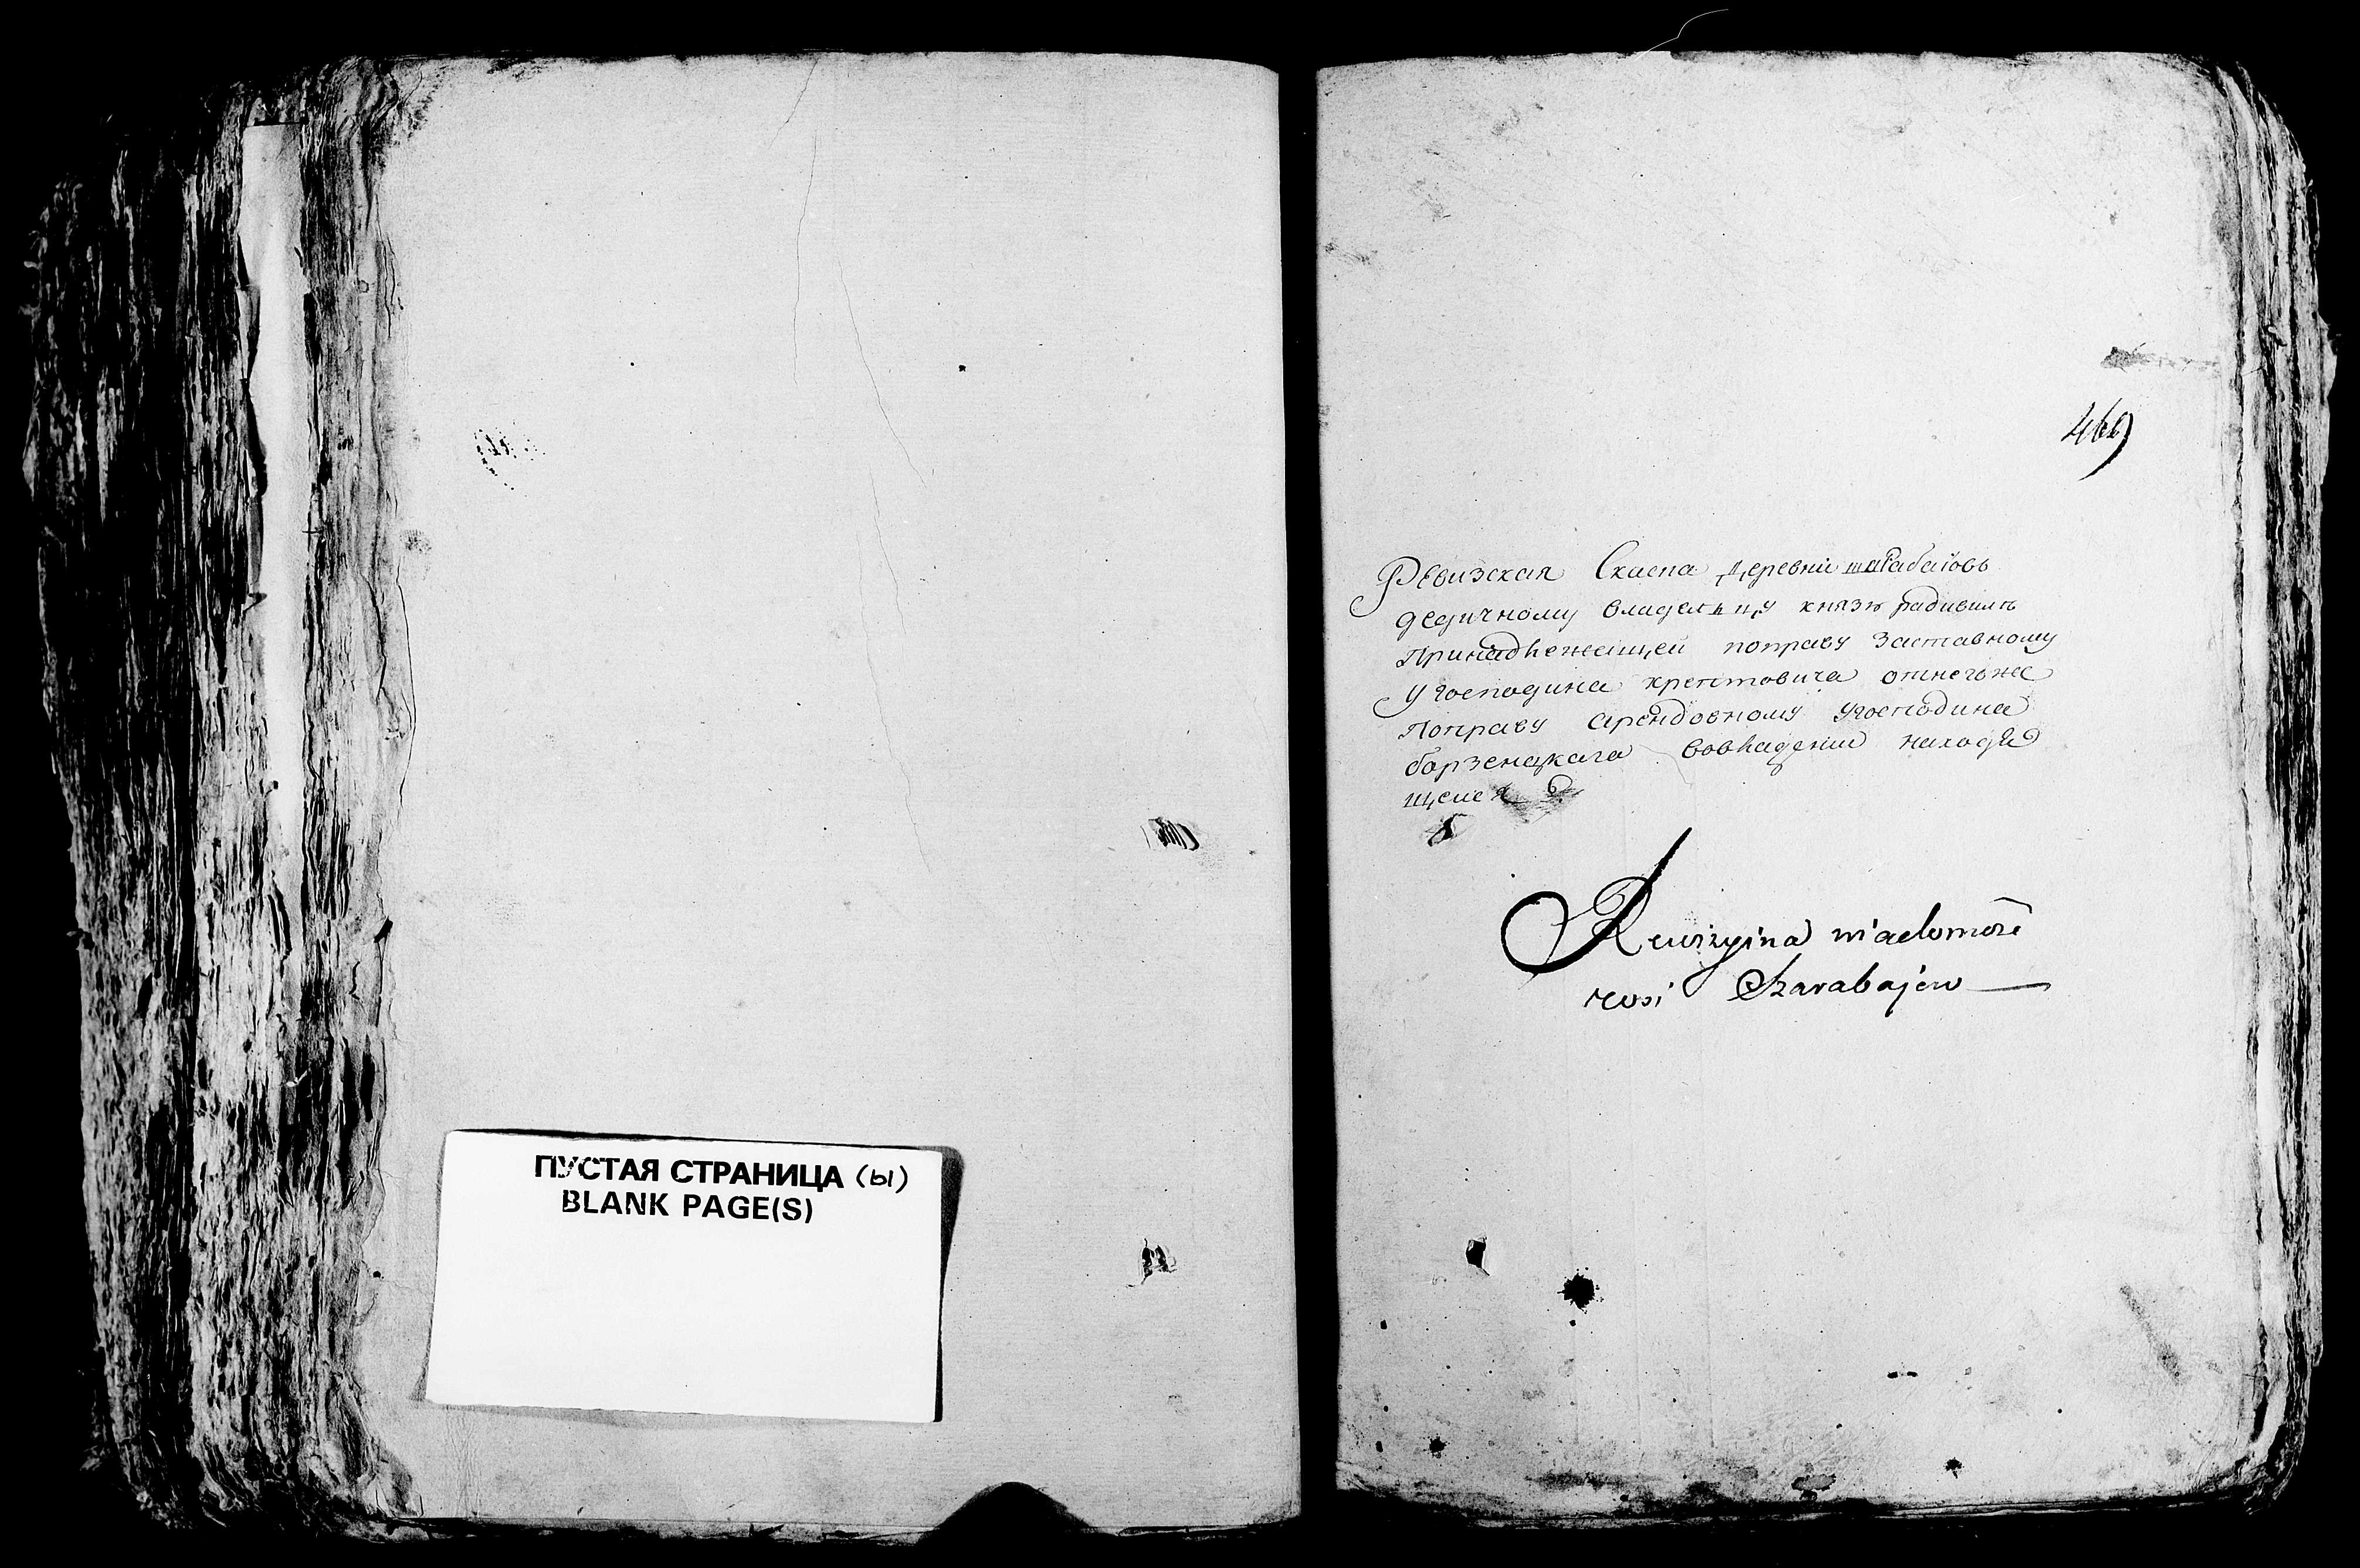 ПУСТАЯ СТРАНИЦА (ы)
BLANK PAGE(S)
Ревизская Скаспа деревни шарабаіовъ
дедичному владельцу князю радивилъ
Принадлежащей поправу заставному
у господина хрептовича отнегоже
Поправу арендовному угосподина
борзенцкага вовладении находя
щейся
Rewizyina wiadomość
wsi Szarabajew